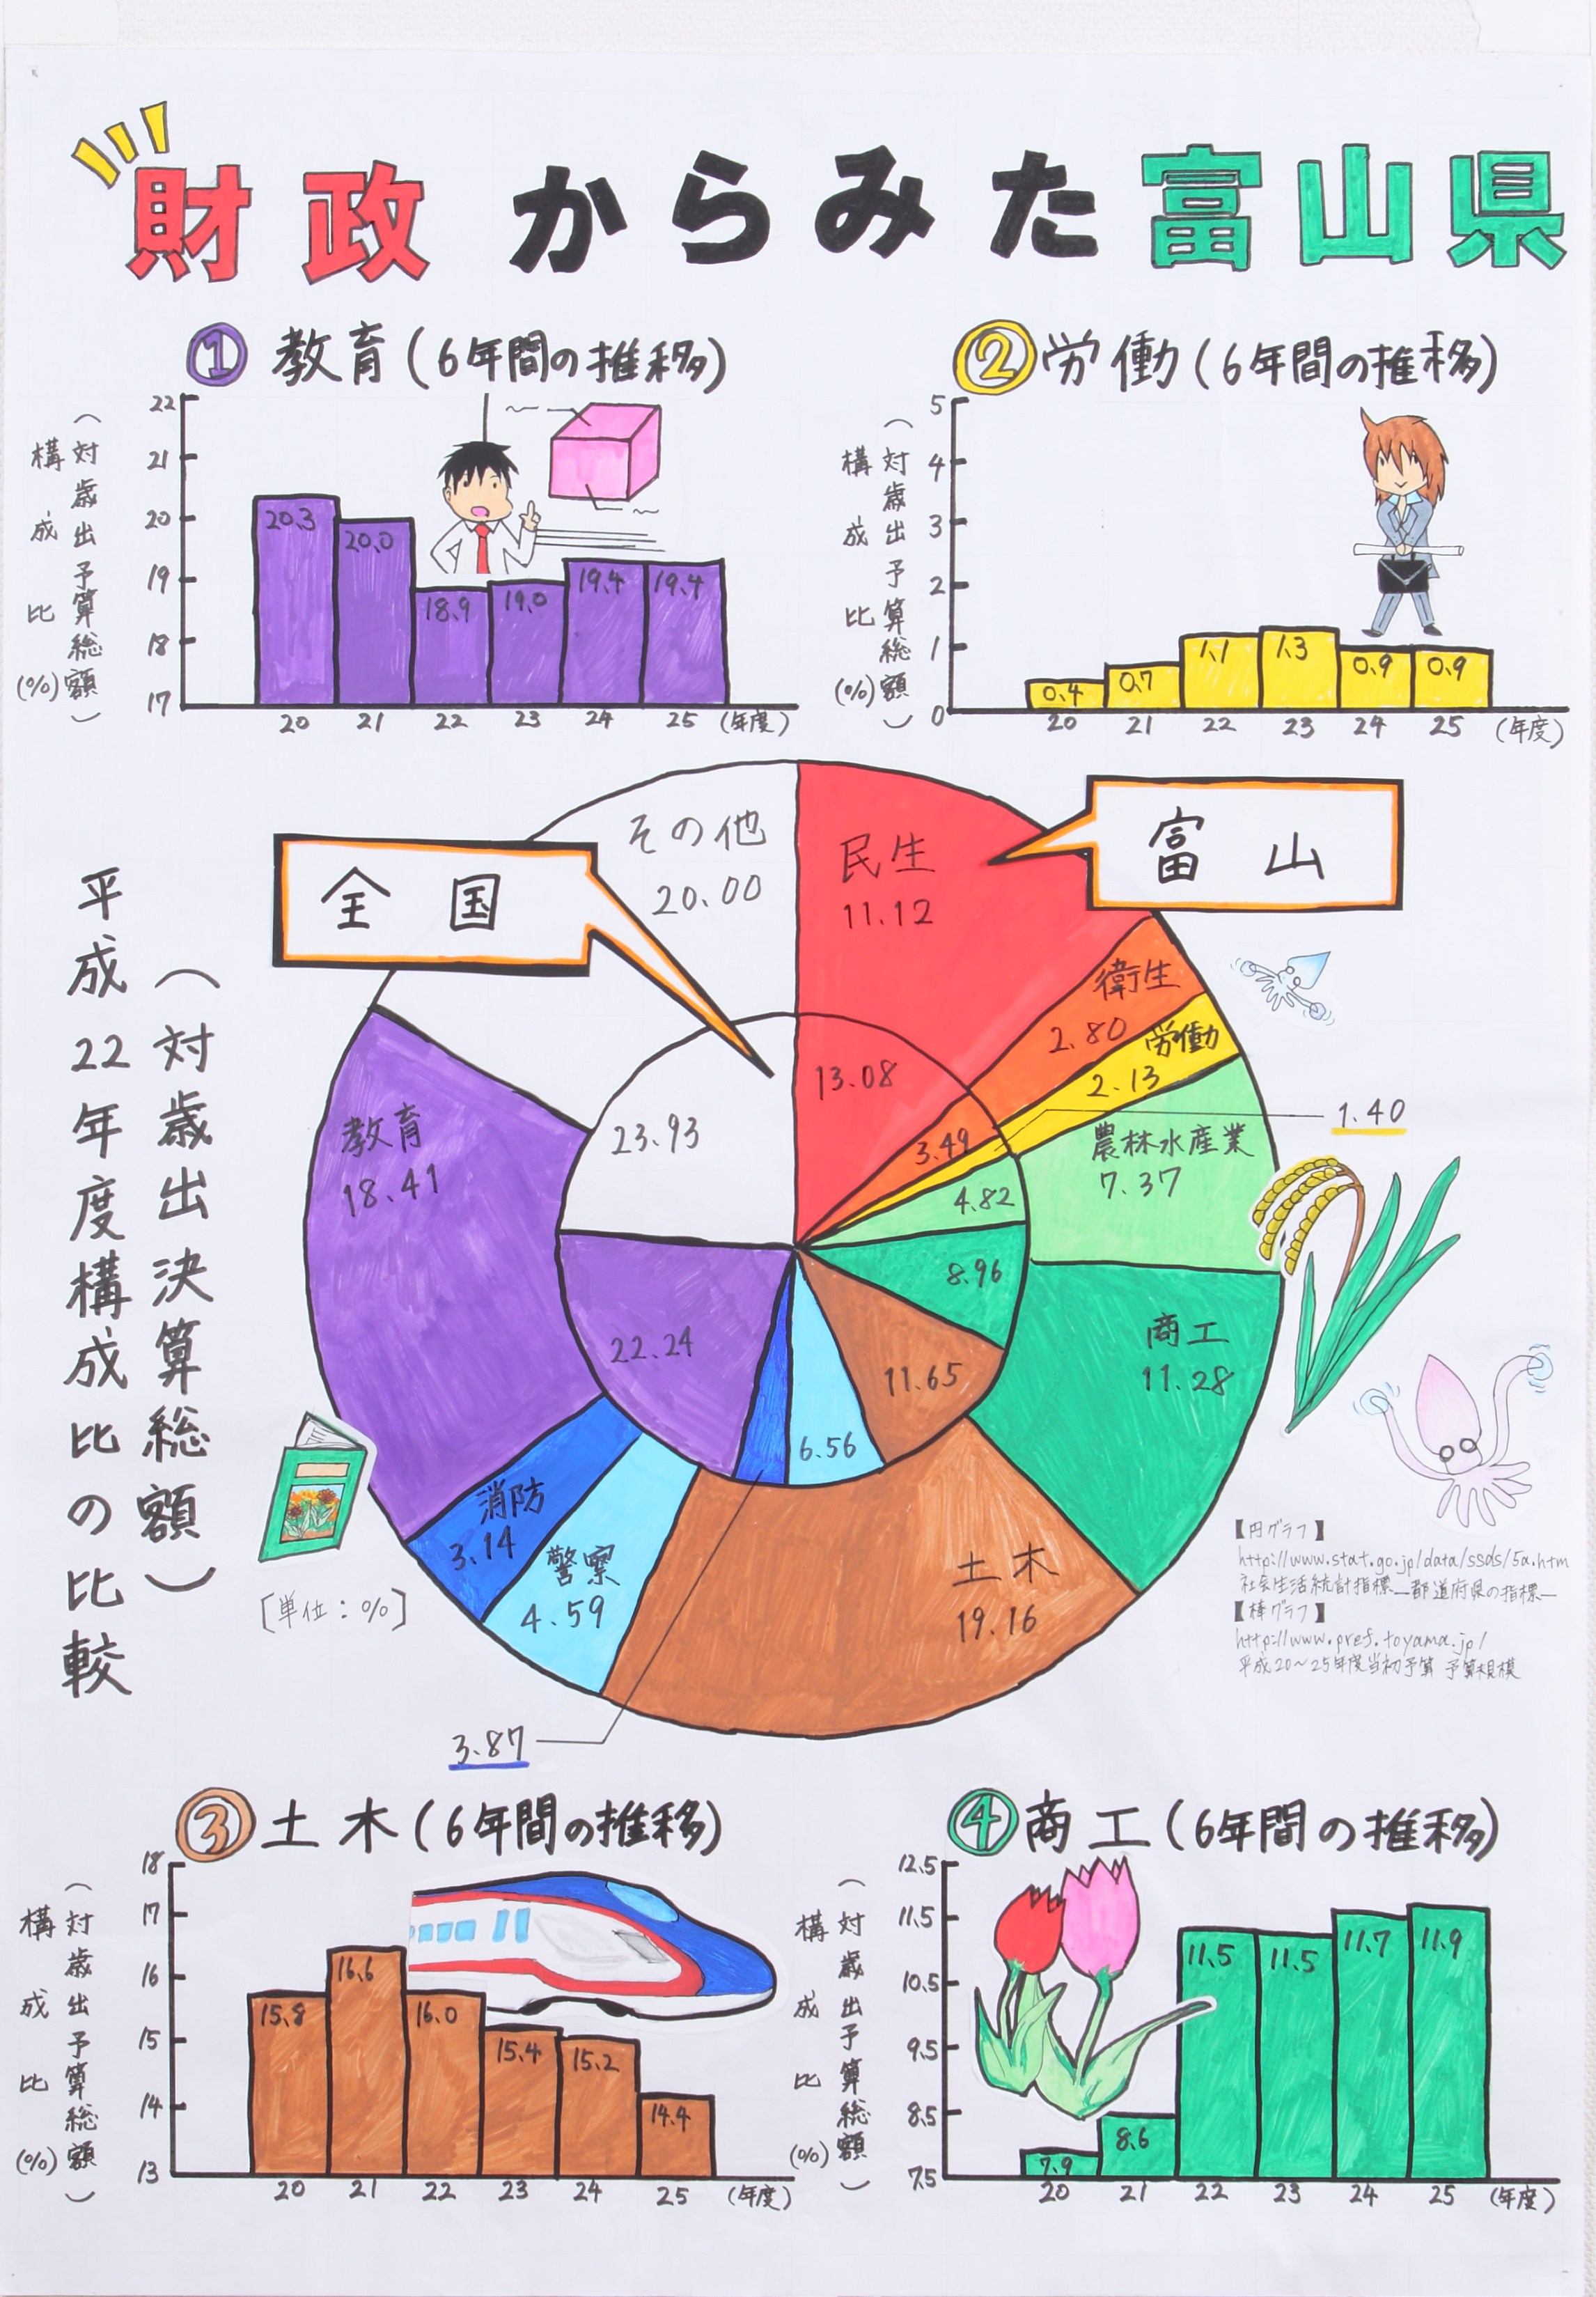 財政からみた富山県
① 教育(6年間の推移)
構成比(%)
(対歳出予算総額)
22
21
20
19
18
17
20.3
20.0
18.9
19.0
19.4
19.4
20 21 22 23 24 25 (年度)
② 労働(6年間の推移)
構成比(%)
(対歳出予算総額)
5
4
3
2
1
0
0.4
0.7
1.1
1.3
0.9
0.9
20 21 22 23 24 25 (年度)
平成22年度構成比の比較
(対歳出決算総額)
全国
富山
その他
20.00
民生
11.12
衛生
2.80
労働
2.13
農林水産業
7.37
商工
11.28
土木
19.16
警察
4.59
消防
3.14
教育
18.41
13.08
3.49
1.40
4.82
8.96
11.65
6.56
3.87
22.24
23.93
[単位:%]
【円グラフ】
http://www.stat.go.jp/data/ssds/5a.htm
社会生活統計指標―都道府県の指標―
【棒グラフ】
http://www.pref.toyama.jp/
平成20~25年度当初予算 予算規模
③ 土木(6年間の推移)
構成比(%)
(対歳出予算総額)
18
17
16
15
14
13
15.8
16.6
16.0
15.4
15.2
14.4
20 21 22 23 24 25 (年度)
④ 商工(6年間の推移)
構成比(%)
(対歳出予算総額)
12.5
11.5
10.5
9.5
8.5
7.5
7.9
8.6
11.5
11.5
11.7
11.9
20 21 22 23 24 25 (年度)